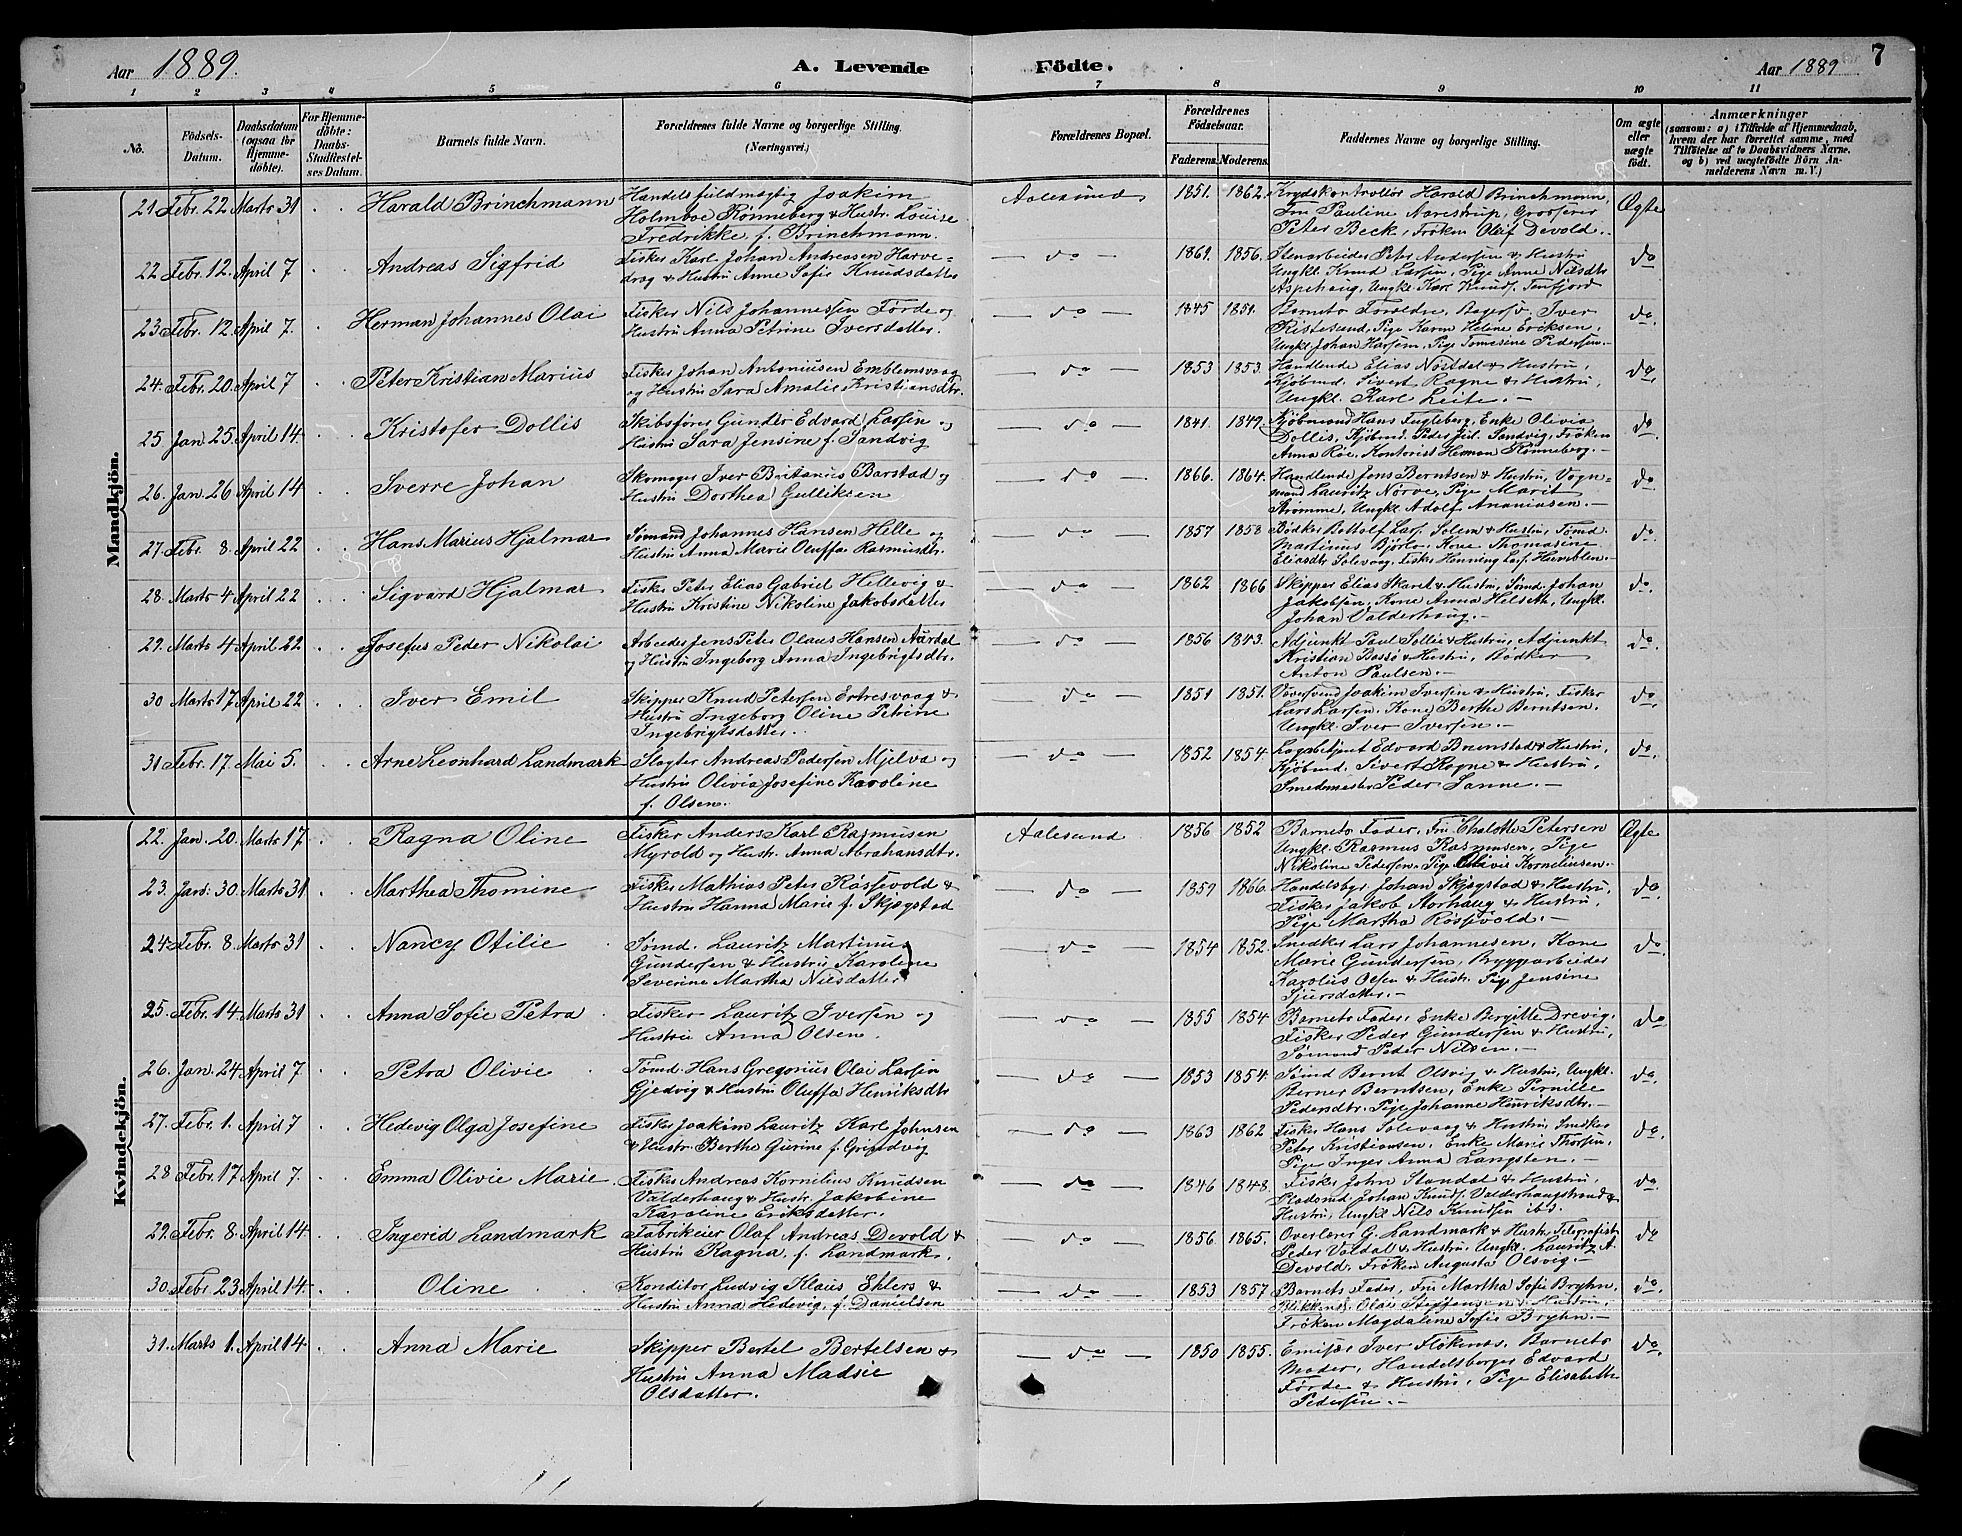 Aar 1889.
A. Levende Födte.
Aar 1889
7
1 2 3 4 5 6 7 8 9 10 11
No.
Födsels-Datum.
Daabsdatum (ogsaa for Hjemme-döbte).
For Hjemme-döbte: Daabs-Stadfæstel-ses Datum.
Barnets fulde Navn.
Forældrenes fulde Navne og borgerlige Stilling.
(Næringsvei.)
Forældrenes Bopæl.
Forældrenes Födselsaar.
Faderens. Moderens.
Faddernes Navne og borgerlige Stilling.
Om ægte eller uægte födt.
Anmærkninger
(saasom: a) i Tilfælde af Hjemmedaab, hvem der har forrettet samme, med Tilföielse af to Daabsvidners Navne, og b) ved uægtefödte Börn An-melderens Navn m. V.)
Mandkjön.
21 Febr. 22 Marts 31 Harald Brinchmann Handelsfuldmægtig Joakim Aalesund 1851. 1862. Harald Brinchmann,
Holmboe Rønneberg & Hustr. Louise Fru Pauline Norestrup, Grosserer Ægte
Fredrikke f. Brinchmann. Peter Beck, Frøken Olaf Devold.
22 Febr. 12. April 7 Andreas Sigfrid Fisker Karl Johan Andreasen Harve- do 1861. 1856. Stenarbeider Peter Andersen & Hustru do
drag & Hustru Anne Sofie Knudsdatter Ungkl. Knud Larsen, Pige Anne Nilsdtr
Aspehaug, Ungkl. Karl Knuds. Tenfjord
23 Febr. 12. April 7. Herman Johannes Olai Fisker Nils Johannessen Førde og do 1845 1851. Barnets Forældre, Iver do.
Hustru Anna Petrine Iversdatter. Ristesund, Pige Karen Helene Eriksen,
Ungkl. Johan Hansen, Pige Tomesine Pedersen.
24. Febr. 20. April 7 Peter Kristian Marius Fisker Johan Antoniusen Emblemsvaag do 1853 1853. Handlende Elias Nøstdal & Hustru, do.
og Hustru Sara Amalie Kristiansdtr. Kjøbmd. Sivert Ragne & Hustru,
Ungkl. Karl Leite.
25. Jan. 25. April 14. Kristofer Dollis Skibsfører Gunder Edvard Larsen og do 1841. 1849. Kjøbmand Hans Fugleberg, Enke Olivia do
Hustru Sara Jensine f. Sandvig Dollis, Kjøbmd. Peder Sandvig, Frøken
Anna Røe, Kontorist Herman Rønneberg.
26. Jan. 26 April 14. Sverre Johan Skomager Iver Britanius Barstad og do 1866. 1864. Handlende Jens Berntsen & Hustru, Vogn- do
Hustru Dorthea Gulliksen mand Lauritz Nørve, Pige Marit
Strømme, Ungkl. Adolf Ananiasen.
27. Febr. 8 April 22 Hans Marius Hjalmar Sømand Johannes Hansen Helle og do 1857 1858 Bødker Bottolf Lars. Solem & Hustru, Tømd. do
Hustru Anna Marie Oluffa Rasmusdtr. Martinus Bjørlo, Kone Thomasine
Eliasdtr Solevaag, Fisker Henning Lars. Humblen.
28. Marts 4 April 22 Sigvard Hjalmar Fisker Peter Elias Gabriel Hellevig & do 1862 1866 Skipper Elias Skaret & Hustru, Sømd. Johan do.
Hustru Kristine Nikoline Jakobsdatter Jakobsen, Kone Anna Helseth, Ungkl.
Johan Valderhaug.
29. Marts 4 April 22 Josefus Peder Nikolai Arbeider Jens Peter Olaus Hansen Aardal do 1856 1843. Adjunkt Paul Sollie & Hustru, Adjunkt do.
og Hustru Ingeborg Anna Ingebrigtsdtr. Kristian Bassø & Hustru, Bødker
Anton Paulsen.
30 Marts 17 April 22 Iver Emil Skipper Knud Petersen Ertresvaag & do 1851 1851. Joakim Iversen & Hustru, Fisker do.
Hustru Ingeborg Oline Petrine Lars Larsen, Kone Berthe Berntsen,
Ingebrigtsdatter. Ungkl. Iver Iversen.
31 Febr. 17. Mai 5. Arne Leonhard Landmark Slagter Andreas Pedersen Mjelva og do 1852 1854. Edvard Brunstad & Hustru, do.
Hustru Olivia Josefine Karoline Kjøbmd. Sivert Ragne & Hustru,
f. Olsen. Smedemester Peder Sanne.
Kvindekjön.
22. Jan. 20. Marts 17 Ragna Oline Fisker Anders Karl Rasmusen Aalesund 1856 1852 Barnets Fader, Fru Chalotte Petersen Ægte
Myrold og Hustr. Anna Abrahansdtr. Ungkl. Rasmus Rasmusen, Pige
Nikoline Pedersen, Pige Olivie Korneliusen.
23. Jan. 30 Marts 31 Marthea Thomine Fisker Mathias Peter Røssevold & do 1859 1866. Handelsbgr. Johan Skjegstad & Hustru, do
Hustru Hanna Marie f. Skjegstad Fisker Jakob Storhaug & Hustru,
Pige Martha Røssevold.
24 Febr. 8. Marts 31 Nancy Otilie Sømd. Lauritz Martinus do 1854 1852. Snedker Lars Johannesen, Kone do
Gundersen & Hustru Karoline Marie Gundersen, Bryggearbeider
Severine Martha Nilsdatter Karolus Olsen & Hustr. Pige Jensine
Sjursdatter.
25. Febr. 14 Marts 31 Anna Sofie Petra Fisker Lauritz Iversen og do 1855 1854 Barnets Fader, Enke Bergitte Drevig, do
Hustru Anna Olsen. Fisker Peder Gundersen & Hustru,
Sømand Peder Nilsen.
26. Jan. 24. April 7 Petra Olivie Tømd. Hans Gregorius Olai Larsen do 1853 1854. Sømd Bernt Olsvig & Hustru, Ungkl. do.
Gjedvig & Hustru Oluffa Henriksdtr Berner Berntsen, Enke Pernille
Pedersdtr. Pige Johanne Henriksdtr.
27. Febr. 1. April 7 Hedevig Olga Josefine Fisker Joakim Lauritz Karl Johnsen do 1863 1862 Fisker Hans Solevaag & Hustru, Snedker do.
& Hustr. Berthe Gurine f. Grindvig Peter Kristiansen, Enke Marie Thorsen,
Pige Inger Anna Langsten.
28 Febr. 17 April 7. Emma Olivie Marie Fisker Andreas Kornelius Knudsen do 1846 1848. Fisker John Standal & Hustru, do.
Valderhaug & Hustr. Jakobine Johan Knuds. Valderhaugstrand &
Karoline Eriksdatter. Hustru, Ungkl. Nils Knudsen ibd.
29. Febr. 8. April 14 Ingerid Landmark Fabrikeier Olaf Andreas Devold & do 1856. 1865. Overlærer G. Landmark & Hustr. Telegrafist do
Hustru Ragna f. Landmark. Peder Valdal & Hustru, Ungkl. Lauritz A.
Devold, Frøken Augusta Olsvig.
30. Febr. 23 April 14. Oline Konditor Ludvig Klaus Ehlers & do 1853 1857. Barnets Fader, Fru Martha Sofie Bryhn, do.
Hustru Anna Hedevig f. Danielsen Olai Steffensen & Hustru,
Frøken Magdalene Sofie Bryhn.
31. Marts 1. April 14 Anna Marie Skipper Bertel Bertelsen & do 1850 1855. Iver Barnets do.
Hustru Anna Madsie Moder, Handelsborger Edvard
Olsdatter. Førde & Hustru, Pige Elisabeth
Pedersen.